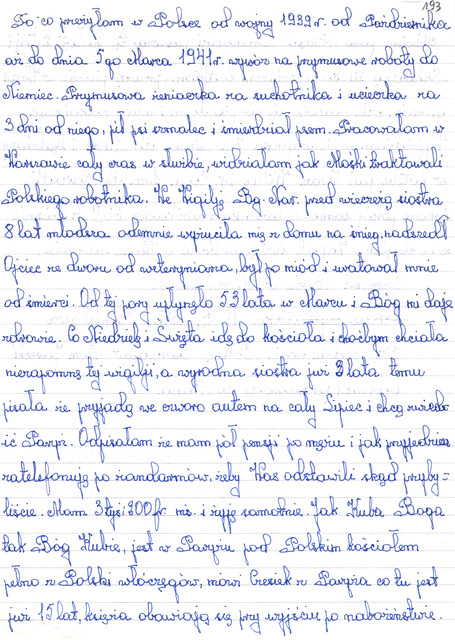 193
To co przeżyłam w Polsce od wojny 1939 r. od Października
aż do dnia 5go Marca 1941 r. wywóz na przymusowe roboty do
Niemiec. Przymusowa żeniaczka za suchotnika i ucieczka za
3 dni od niego, pił psi szmalec i śmierdział psem. Pracowałam w
Warszawie cały czas w służbie, widziałam jak Mośki traktowali
Polskiego robotnika. We Wigilję Bg. Nar. przed wieczerzą siostra
8 lat młodsza odemnie wyrzuciła mię z domu na śnieg, nadszedł
Ojciec ze dworu od weterynarza, był po miód i uratował mnie
od śmierci. Od tej pory upłynęło 53 lata w Marcu i Bóg mi daje
zdrowie. Co Niedzielę i Święta idę do kościoła i choćbym chciała
niezapomnę tej wigilji, a wyrodna siostra już 3 lata temu
pisała że przyjadą we czworo autem na cały Lipiec i chcą zwiedz-
ić Paryż. Odpisałam że mam pół pensji po mężu i jak przyjedziecie
zatelefonuję po żandarmów, żeby Was odstawili skąd przyby-
liście. Mam 3 tyś i 200 fr. mś. i żyję samotnie. Jak Kuba Bogu
tak Bóg Kubie, jest w Paryżu pod Polskim kościołem
pełno z Polski włóczęgów, mówi Czesiek z Paryża co tu jest
już 15 lat, księża obawiają się przy wyjściu po nabożeństwie.